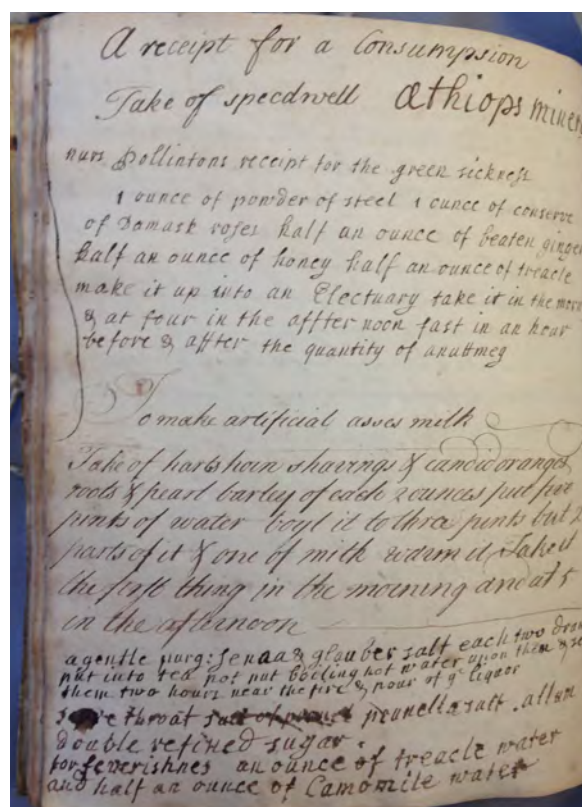 A receipt for a Consumpsion
Take of speedwell Æthiops miner
nurs Pollintons receipt for the green sickness
1 ounce of powder of steel 1 ounce of conserve
of Damask roses half an ounce of beaten ginger
half an ounce of honey half an ounce of treacle
make it up into an Electuary take it in the morn
& at four in the affter noon fast in an hour
before & affter the quantity of anuttmeg
To make artificial asses milk
Take of hartshorn shavings & candic oranges
roots & pearl barley of each 2 ounces put
pints of water boyl it to three pints but 2
parts of it & one of milk warm it Take it
the first thing in the morning and at 5
in the afternoon
a gentle purg: senaa & glauber salt each two dram
put into tea pot put boeling hot water upon them &
them two hours near the fire & pour of ye liquor
throat prunella salt . allum
double refined sugar .
for feverishnes an ounce of treacle water
and half an ounce of Camomile water